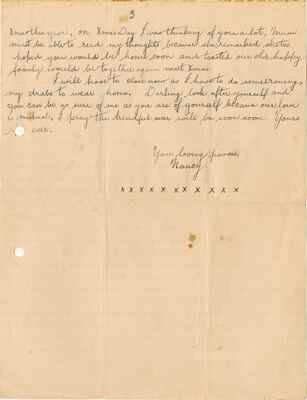 3
another year, on Xmas Day I was thinking of you a lot, Mum
must be able to read my thoughts because she remarked that she
hoped you would be home soon and trusted our old happy
family would be together again next Xmas.
I will have to close now as I have to do some
my dress to wear home. Darling look after yourself and
you can be as sure of me as you are of yourself because our love
is mutual, I pray the dreadful war will be over soon. Yours
ever.
Your loving fiancée
Nancy.
x x x x x x x x x x